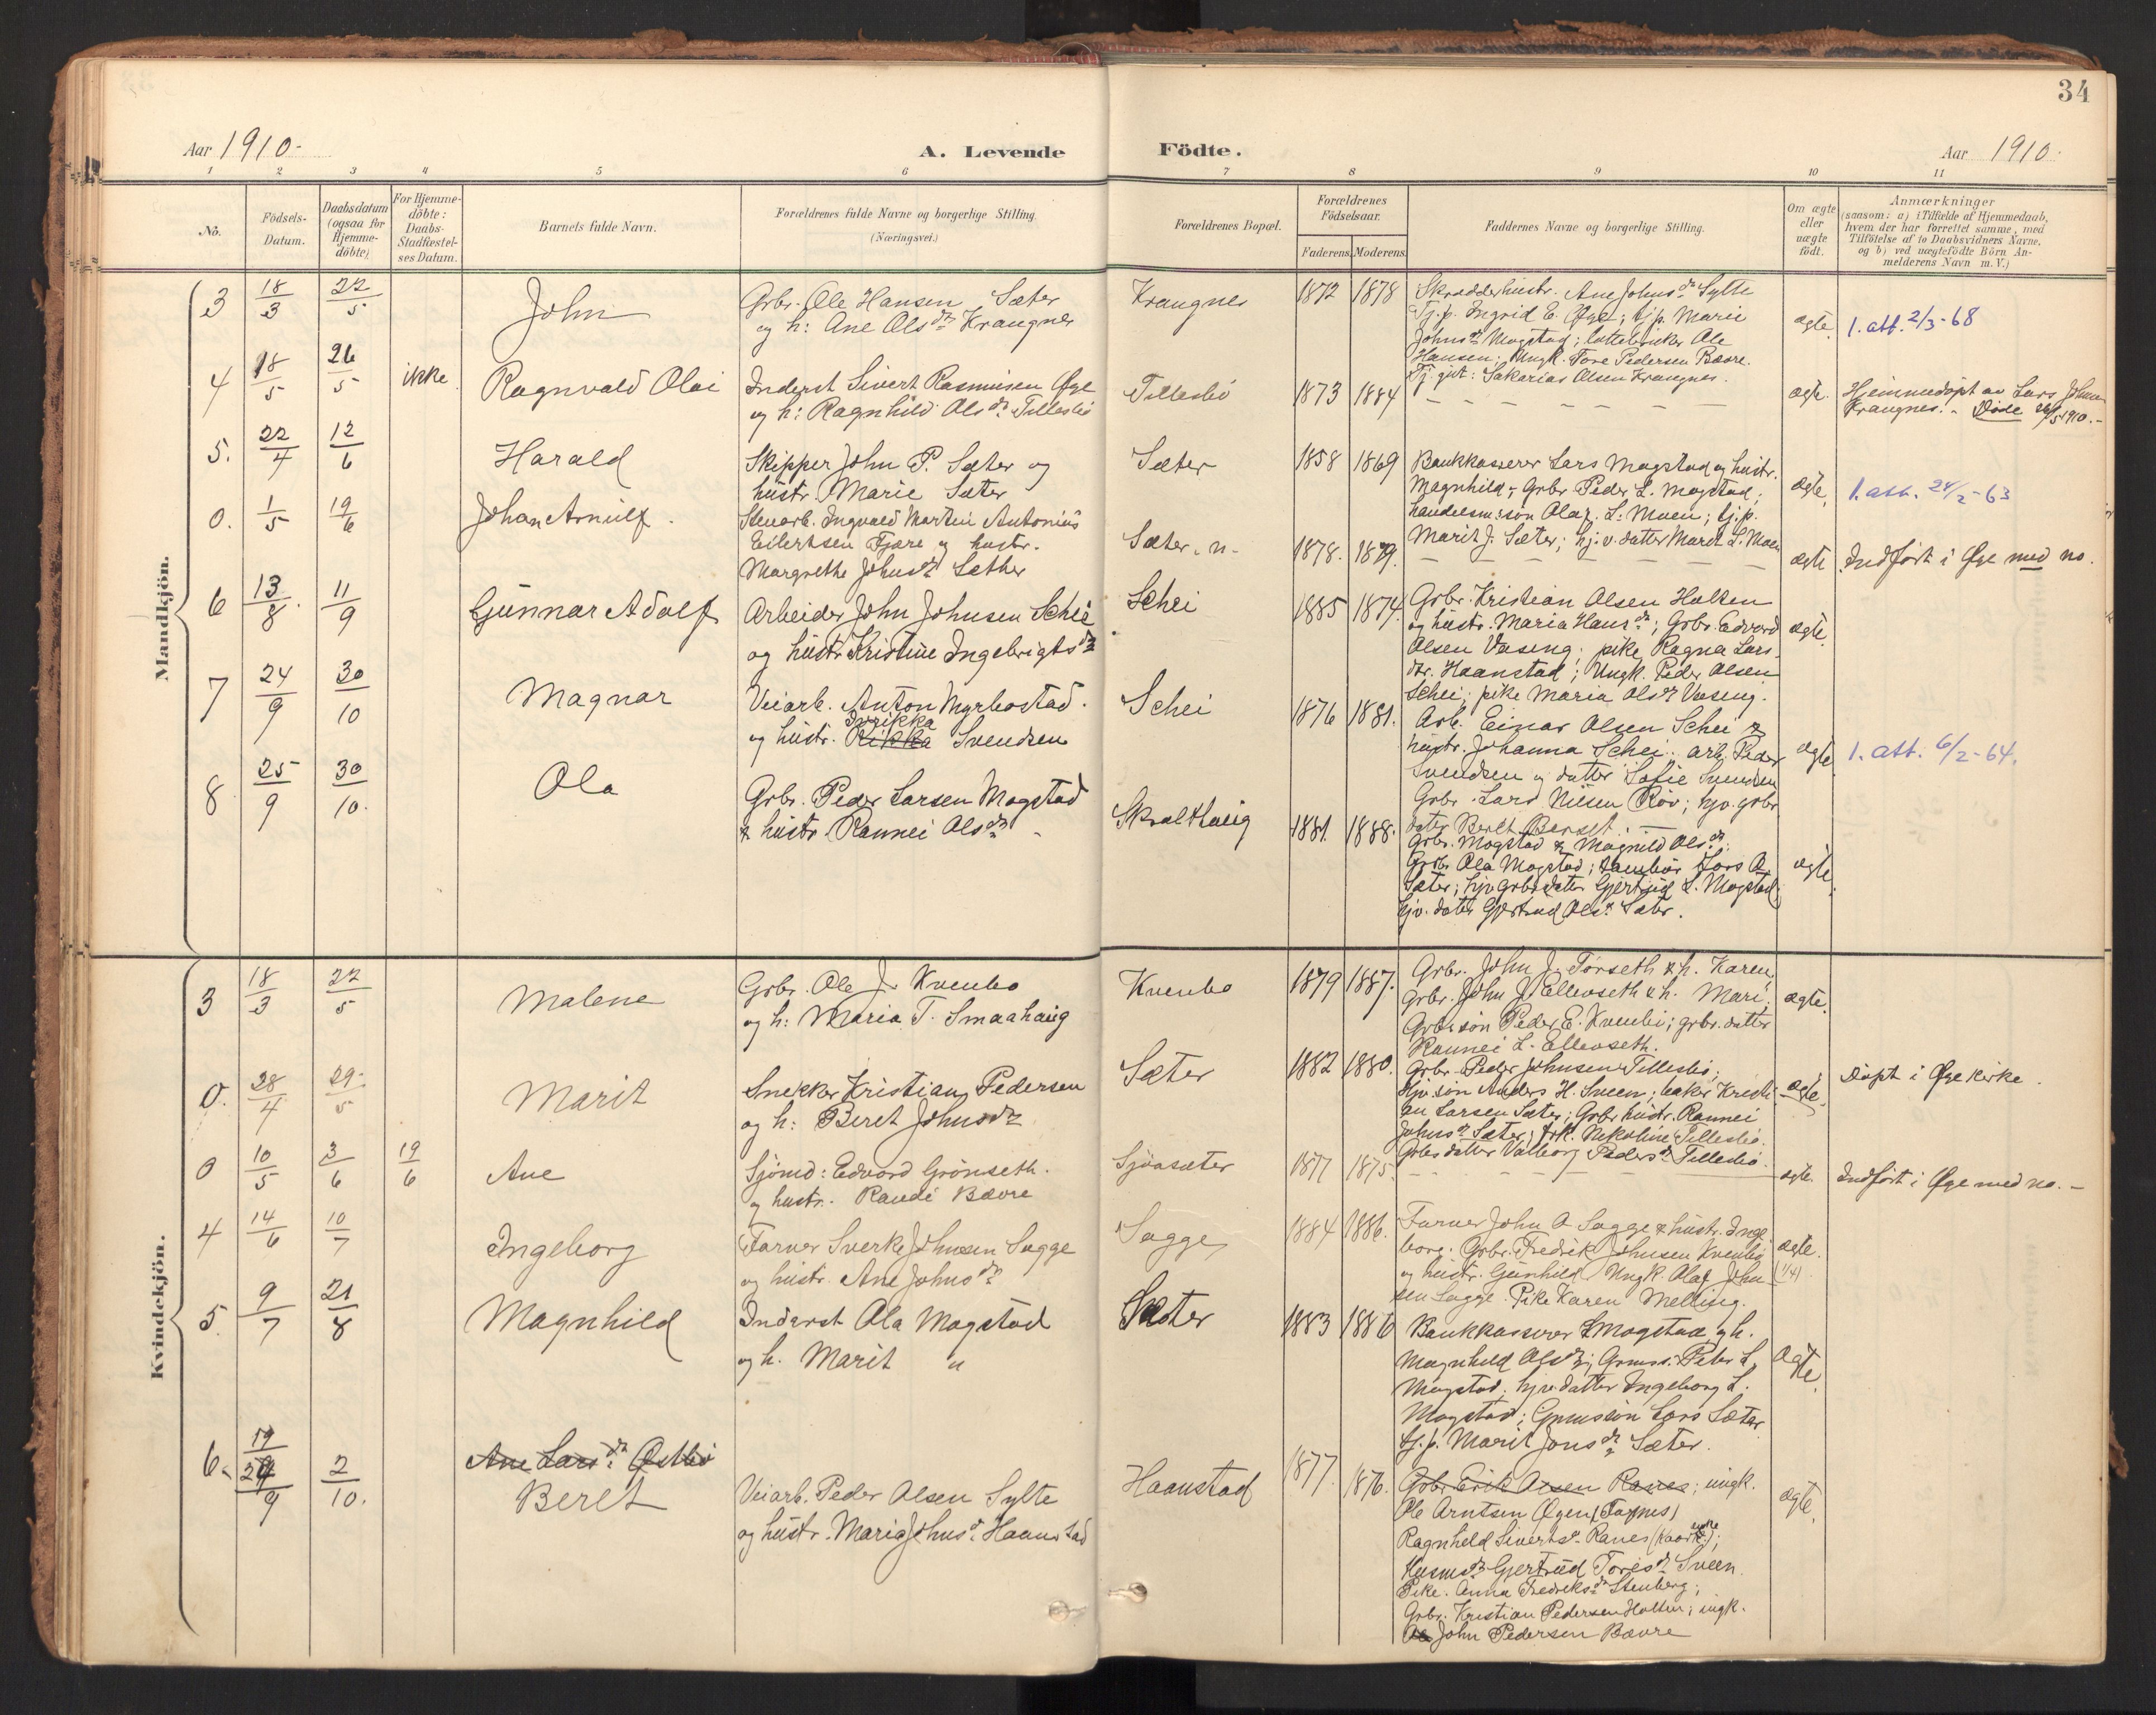 34
Aar 1910.
A. Levende Födte.
Aar 1910.
1 2 3 4 5 6 7 8 9 10 11
No.
Födsels-
Datum.
Daabsdatum
(ogsaa for
Hjemme-
döbte).
For Hjemme-
döbte:
Daabs-
Stadfæstel-
ses Datum.
Barnets fulde Navn.
Forældrenes fulde Navne og borgerlige Stilling.
(Næringsvei.)
Forældrenes Bopæl.
Forældrenes
Födselsaar.
Faderens. Moderens.
Faddernes Navne og borgerlige Stilling.
Om ægte
eller
uægte
födt.
Anmærkninger
(saasom: a) i Tilfælde af Hjemmedaab,
hvem der har forrettet samme, med
Tilföielse af to Daabsvidners Navne,
og b) ved uægtefödte Börn An-
melderens Navn m. V.)
Mandkjön.
3 18/3 22/5 John
Grbr. Ole Hansen Sæter
og h: Ane Olsdr. Krangnes
Krangnes 1872 1878
Skrædderhustr. Ane Johnsdr. Sylte
Tj.p. Ingrid E. Øye; tj.p. Marie
Johnsdr. Magstad; Ole
Hansen; Ungk. Tore Pedersen Bævre.
Tj.gut: Sakarias Olsen Krangnes.
ægte. 1. att. 2/3-68
4 18/5 26/5 ikke Ragnvald Olai
Inderst Sivert Rasmussen Øye
og h: Ragnhild Olsdr. Tillesbö
Tillesbö 1873 1884 — — — — —
ægte. Hjemmedöpt av Lars Johnsen
Krangnes. - Döde 26/5 1910.-
5. 22/4 12/6 Harald
Skipper John P. Sæter og
hustr. Marie Sæter
Sæter 1858 1869
Bankkasserer Lars Magstad og hustr.
Magnhild; Grbr. Peder L. Magstad;
handelsm:sön Olaf L. Moen; tj.p.
Marit J. Sæter; hj.v. datter Marit L. Moen
ægte. 1. att. 24/2-63
0. 1/5 19/6 Johan Arnulf.
Stenarb. Ingvald Martin Antonius
Eilertsen Fjære og hustr.
Margrethe Johnsdr. Sæther
Sæter. n. 1878. 1879. — — — — —
ægte. Indfört i Øye med no.
6 13/8 11/9 Gunnar Adolf
Arbeider John Johnsen Schei
og hustr. Kristine Ingebrigtsdr.
Schei 1885 1874.
Grbr. Kristian Olsen Holten
og hustr. Maria Hansdr; Grbr. Edvard
Olsen Vaseng. pike Ragna Lars
dtr. Haanstad; Ungk. Peder Olsen
Schei; pike Maria Olsdr. Vaseng.
ægte.
7 24/9 30/10 Magnar
Veiarb. Anton Myrbostad.
Dorikka
og hustr. Rikka Svendsen
Schei 1876 1881.
Arb. Einar Olsen Schei &
hustr. Johanna Schei; arb. Peder
Svendsen og datter Sofie Svendsen
Grbr. Lars Nilsen Röv; hjv. grbr.
datter Beret Berset. —
ægte. 1. att. 6/2-64.
8 25/9 30/10. Ola
Grbr. Peder Larsen Magstad
& hustr. Rannei Olsdr.
Skralthaug 1881 1888.
Grbr. Magstad & Magnild Olsdr.
Grbr. Ola Magstad; Lars O.
Sæter; hjv. grbr.datter Gjertrud L. Magstad;
hjv. datter Gjertrud Olsdr. Sæter.
ægte.
Kvindekjön.
3 18/3 22/5 Malene
Grbr. Ole J. Kvenbo
og h: Maria T. Smaahaug
Kvenbo 1879 1887.
Grbr. John J. Törseth & h. Karen;
Grbr. John J. Ellevseth & h. Mari;
Grbr.sön Peder E. Kvenbö; grbr.datter
Rannei L. Ellevseth.
ægte.
0. 28/4 29/5 Marit
Snekker Kristian Pedersen
og h: Beret Johnsdr.
Sæter 1882 1880.
Grbr. Peder Johnsen Tillesbö;
Hjv.sön Anders H. Sveen; baker Kristi-
an Larsen Sæter; Grbr.hustr. Rannei
Johnsdr. Sæter; frk. Nikoline Tillesbö.
Grbr.datter Valborg Pedersdr. Tillesbö.
ægte. Döpt i Øye kirke.
0 10/5 3/6 19/6 Ane
Sjömd: Edvard Grönseth.
og hustr. Randi Bævre
Sjöasæter 1877 1875. — — — — —
ægte. Indfört i Øye med no.-
4 14/6 10/7 Ingeborg
Farver Sverke Johnsen Sagge
og hustr. Ane Johnsdr.
Sagge 1884 1886.
Farver John A. Sagge & hustr. Inge-
borg. Grbr. Fredrik Johnsen Kvenbö
og hustr. Gunhild. Ungk. Olaf John
sen Sagge. Pike Karen Melling.
ægte. (1/4).
5. 9/7 21/8 Magnhild
Inderst Ola Magstad
og h. Marit "
Sæter 1883 1886
Bankkasserer L. Magstad og h.
Magnhild Olsdr.; Grmss. Peter L.
Magstad; hjv. datter Ingeborg L.
Magstad; Grmssön Lars Sæter
tj.p. Marit Jonsdr. Sæter.
Ægte.
6. 19/9 24/9 2/10. Ane Larsdr. Østbö
Beret
Veiarb. Peder Olsen Sylte
og hustr. Maria Johnsdr. Haanstad
Haanstad 1877. 1876.
Grbr. Erik Olsen Ranes; ungk.
Ole Arntsen Øyen (Fagnes)
Ragnhild Sivertsdr. Ranes;
Husmdr. Gjertrud Toresdr. Sveen.
Pike. Anna Fredriksdr. Stenberg;
Grbr. Kristian Pedersen Holten; ungk.
John Pedersen Bævre
ægte.